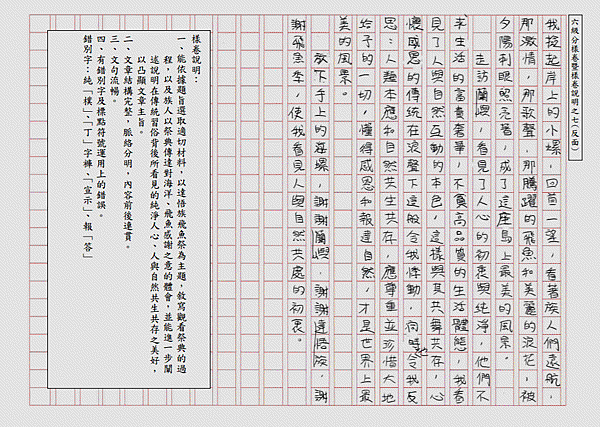 六級分樣卷暨樣卷說明之七(反面說
我撿起岸上的小螺,回首一望,看著族人們遠航,
那激情,那歌聲,那騰躍的飛魚和美麗的浪花,被
夕陽剎眼照亮著,成了這座島上最美的風景。
走訪蘭嶼,看見了人心的初衷與純淨,他們不
求生活的富貴奢華,不冀高品質的生活體態,我看
見了人與自然互動的本色,這樣與其共舞共存,心
懷感恩的傳統在浪聲下這般令我悸動,同時也令我反
思:人類本應和自然共生共存,應尊重並珍惜大地
給予的一切,懂得感恩和報達自然,才是世界上最
美的風景。
放下手上的海螺,謝謝蘭嶼,謝謝達悟族,謝
謝飛魚季,使我看見人與自然共處的初衷。
樣卷說明:
一、能依據題旨選取適切材料,以達悟族飛魚祭為主題,敘寫觀看祭典的過
程,以及族人以祭典傳達對海洋、飛魚感謝之意的體會,並能進一步闡
述說明在傳統習俗背後所看見的純淨人心、人與自然共生共存之美好,
以凸顯文章主旨。
二、文章結構完整,脈絡分明,內容前後連貫。
三、文句流暢。
四、有錯別字及標點符號運用上的錯誤。
錯別字:純「樸」、「丁」字褲、「宣示」、報「答」